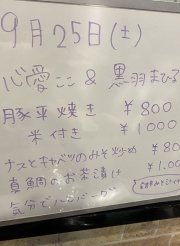 9月25日(土)
心愛ここ & 黒羽まひる
豚平焼き ¥800
米付き ¥1000
ナスとキャベツのみそ炒め ¥80
真鯛のお茶漬け ¥1.00
気分でハンバーグ